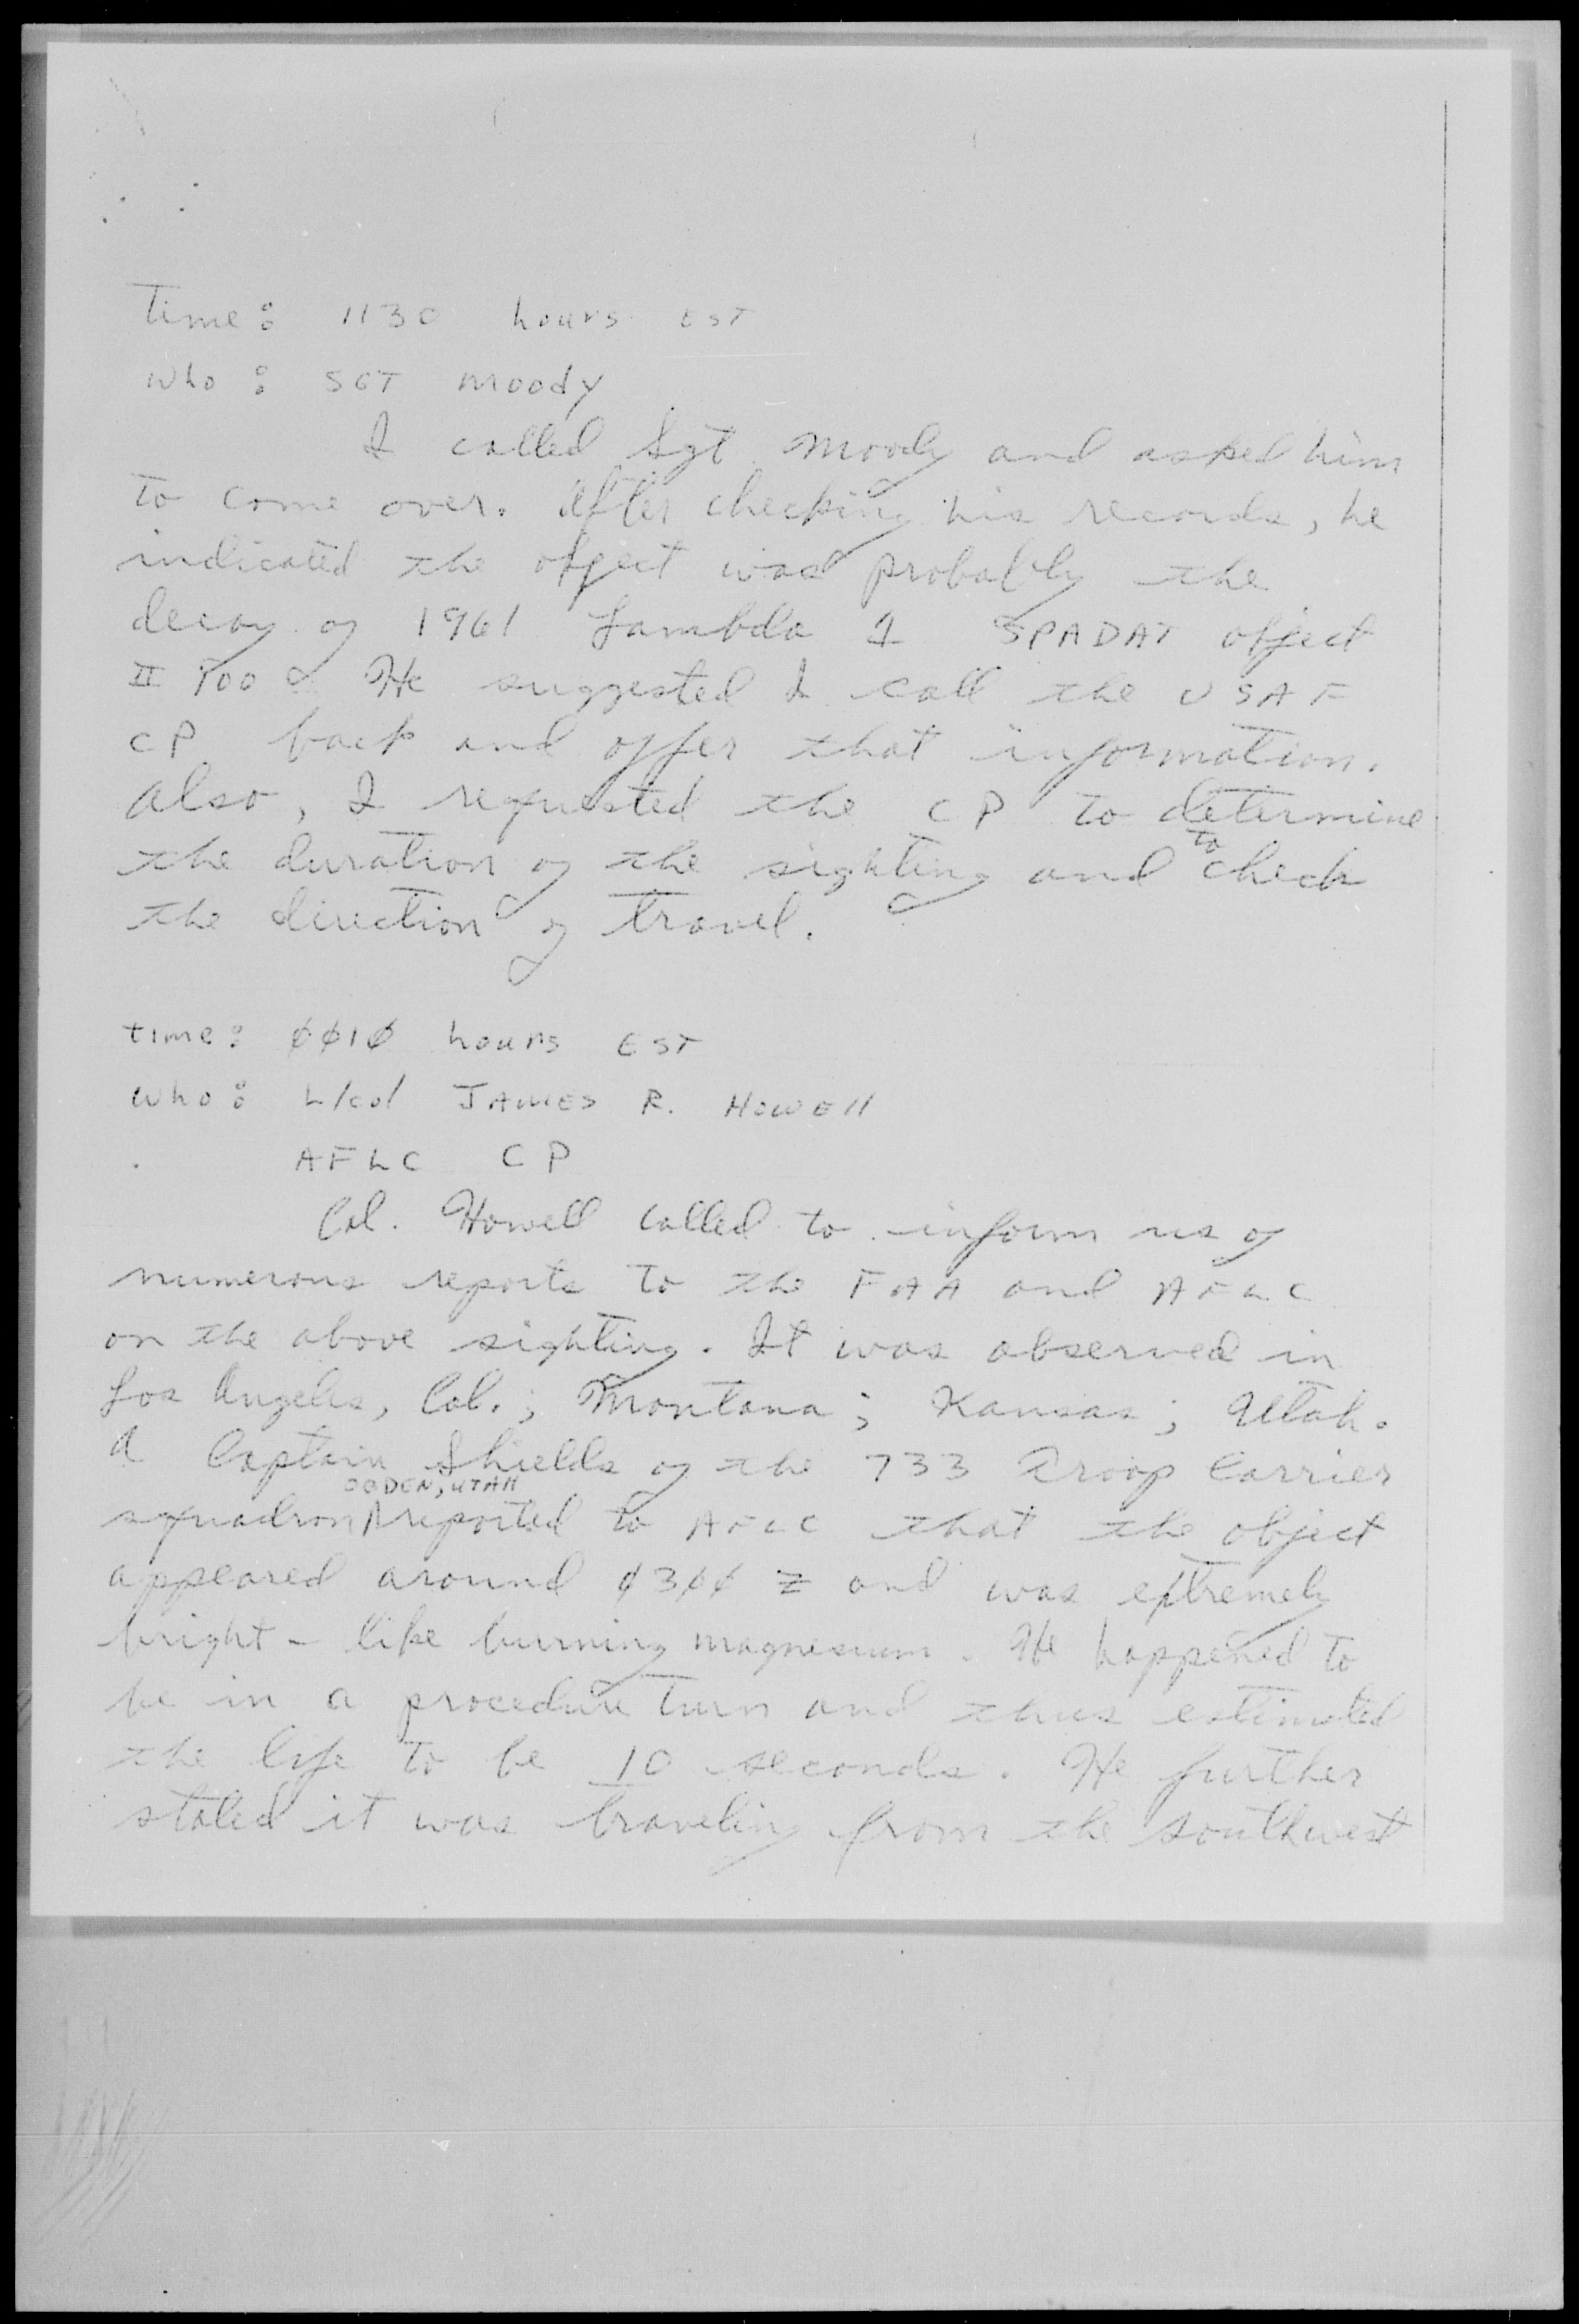 Time: 1130 hours EST
Who: SGT Moody
I called Sgt Moody and asked him
to come over. After checking his records, he
indicated the object was probably the
decay of 1961 Lambda 1 SPADAT object
He suggested I call the USAF
CP back and offer that information.
Also, I requested the CP to determine
the duration of the sighting and to check
the direction of travel.
Time: 0010 hours EST
Who: L/Col JAMES R. HOWELL
AFLC CP
Col. Howell called to inform us of
numerous reports to the FAA and AFLC
on the above sighting. It was observed in
Los Angeles, Cal.; Montana; Kansas; Utah.
A Captain Shields of the 733 Troop Carrier
squadron OGDEN, UTAH reported to AFLC that the object
appeared around 0300 Z and was extremely
bright - like burning magnesium. He happened to
be in a procedure turn and thus estimated
the life to be 10 seconds. He further
stated it was traveling from the southwest